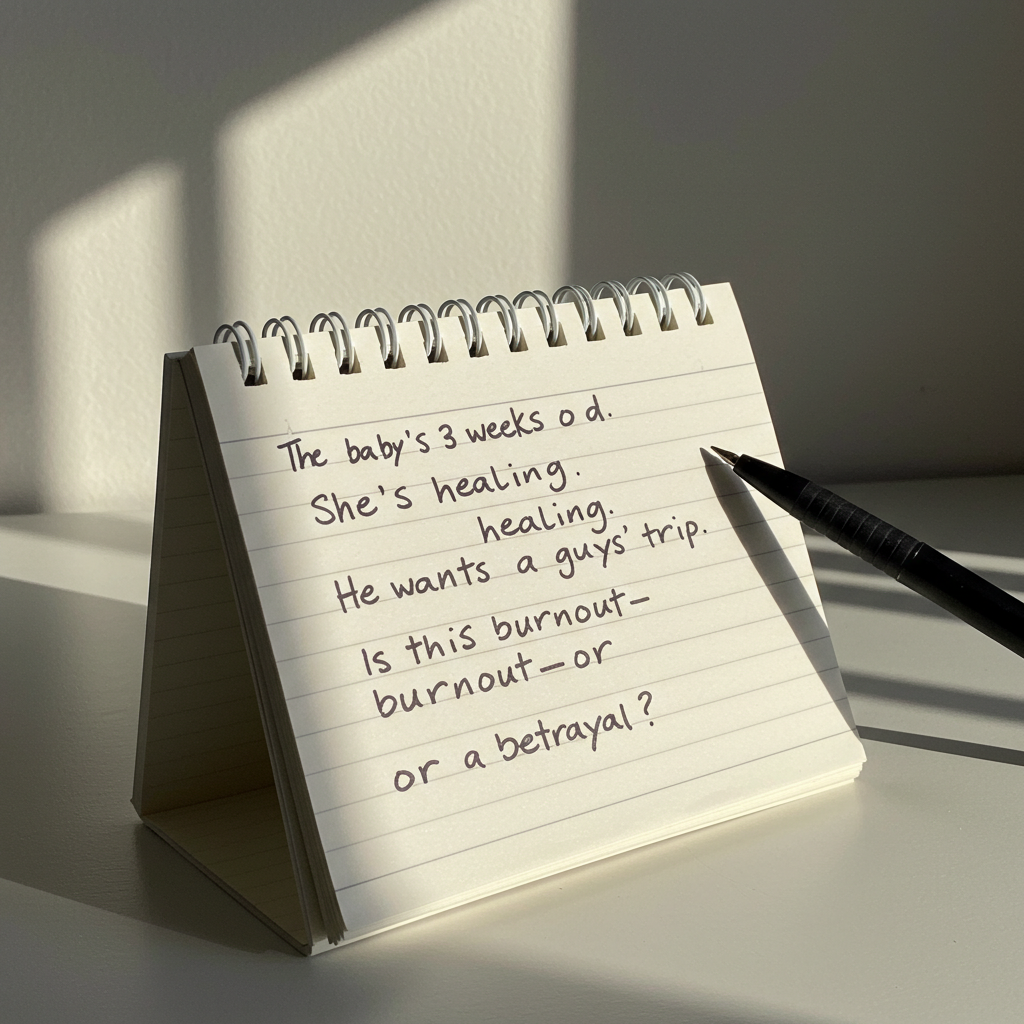 The baby's 3 weeks o d.
She's healing.
healing.
He wants a guys' trip.
Is this burnout—
burnout — or
or a betrayal?